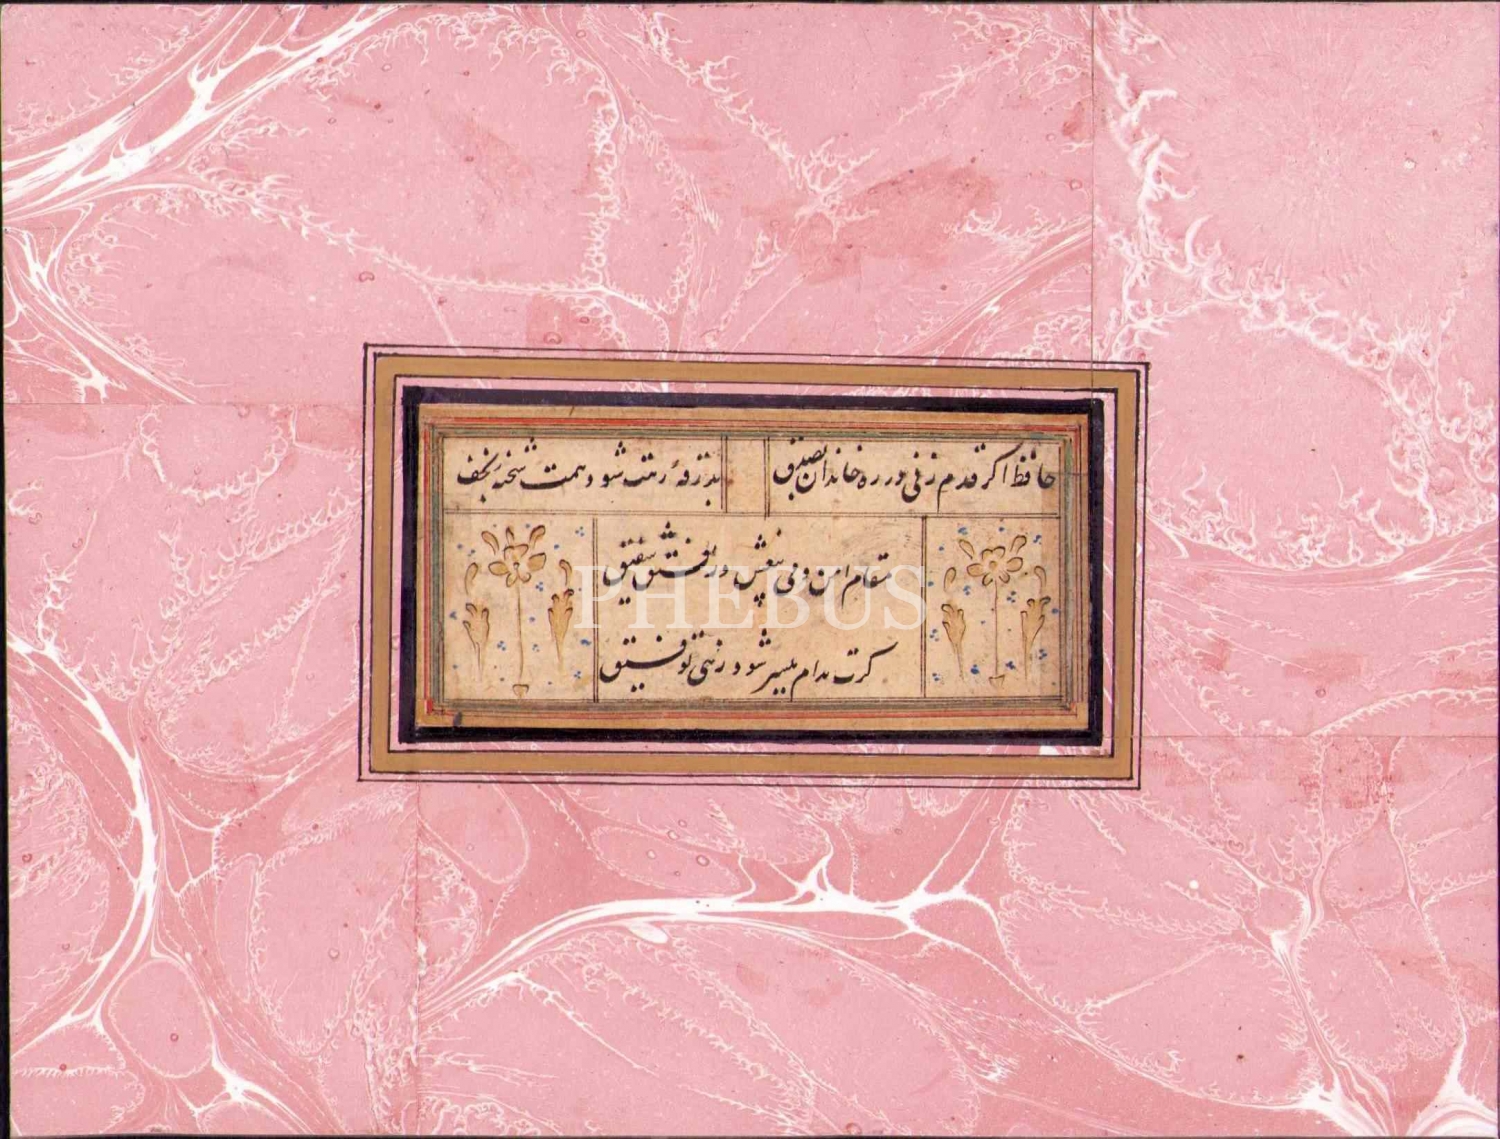 حافظ اگر قدم زنی در ره خاندان بصدق
بدرقهٔ رهت شود همت شحنهٔ نجف
مقام امن و می بیغش و رفیق شفیق
گرت مدام میسر شود زهی توفیق
PHEBUS